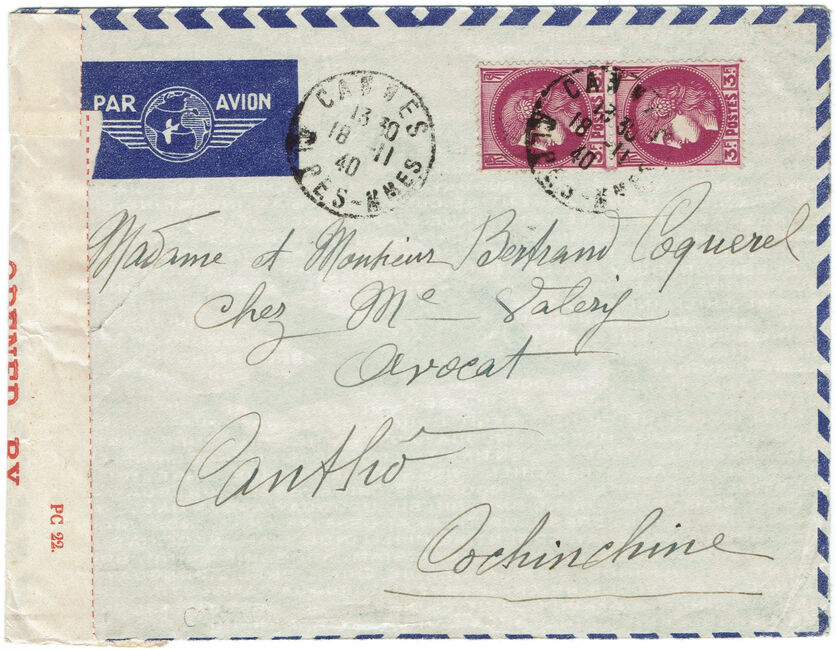 PAR AVION
CANNES
13 30
18 -11
40
RES-MMES
CANN ES
13 30
18 -11
40
POSTES 3F
Madame et Monsieur Bertrand Coquerel
chez Me Valéry
Avocat
Canthô
Cochinchine
OPENED BY
PC 22.